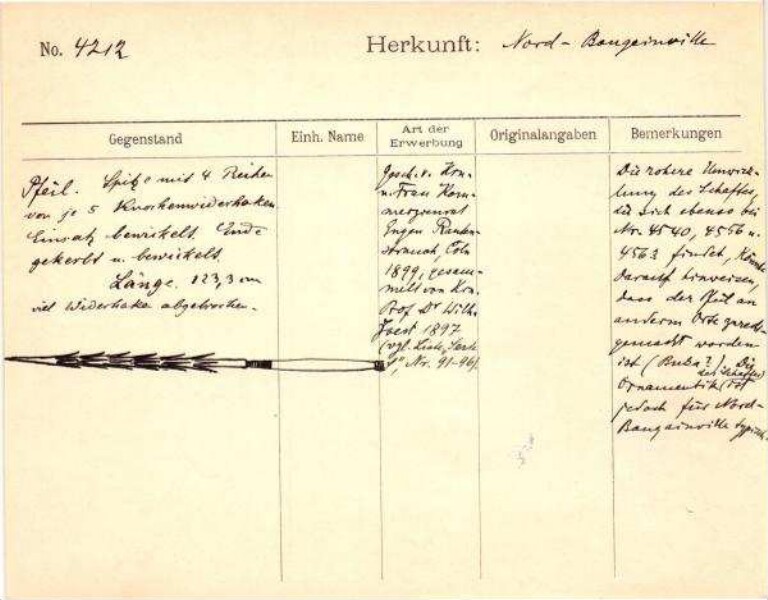 No. 4212
Herkunft: Nord-Bougainville
Gegenstand
Einh. Name
Art der
Erwerbung
Originalangaben
Bemerkungen
Pfeil. Spitze mit 4 Reihen
von je 5 Knochenwiderhaken
Einsatz bewickelt. Ende
gekerbt u. bewickelt.
Länge. 123,3 cm
viel Widerhaken abgebrochen.
Gesch. v. Hrn.
u. Frau Kom-
merzienrat
Eugen Rauten-
strauch, Cöln
1899, gesam-
melt von Hrn.
Prof Dr Wilh.
Joest 1897
(vgl. Liste,
Nr. 91-96).
Die rohere Umwick-
lung des Schaftes,
die sich ebenso bei
Nr. 4540, 4556 u.
4563 findet, könnte
darauf hinweisen,
dass der Pfeil an
anderm Orte
gemacht worden
ist (Buka?). Die
Ornamentik (des Schaftes) ist
jedoch für Nord-
Bougainville typisch.